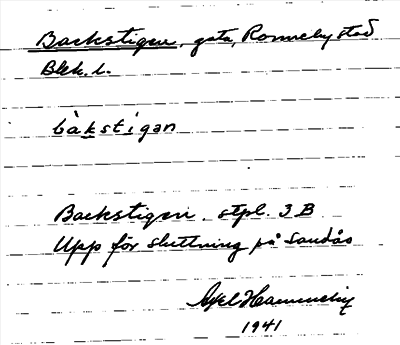 Backstigen, gata, Ronneby stad
Blek. l.
bàkstigan
Backstigen, stpl. 3 B
Upp för sluttning på Sandås
Axel
1941